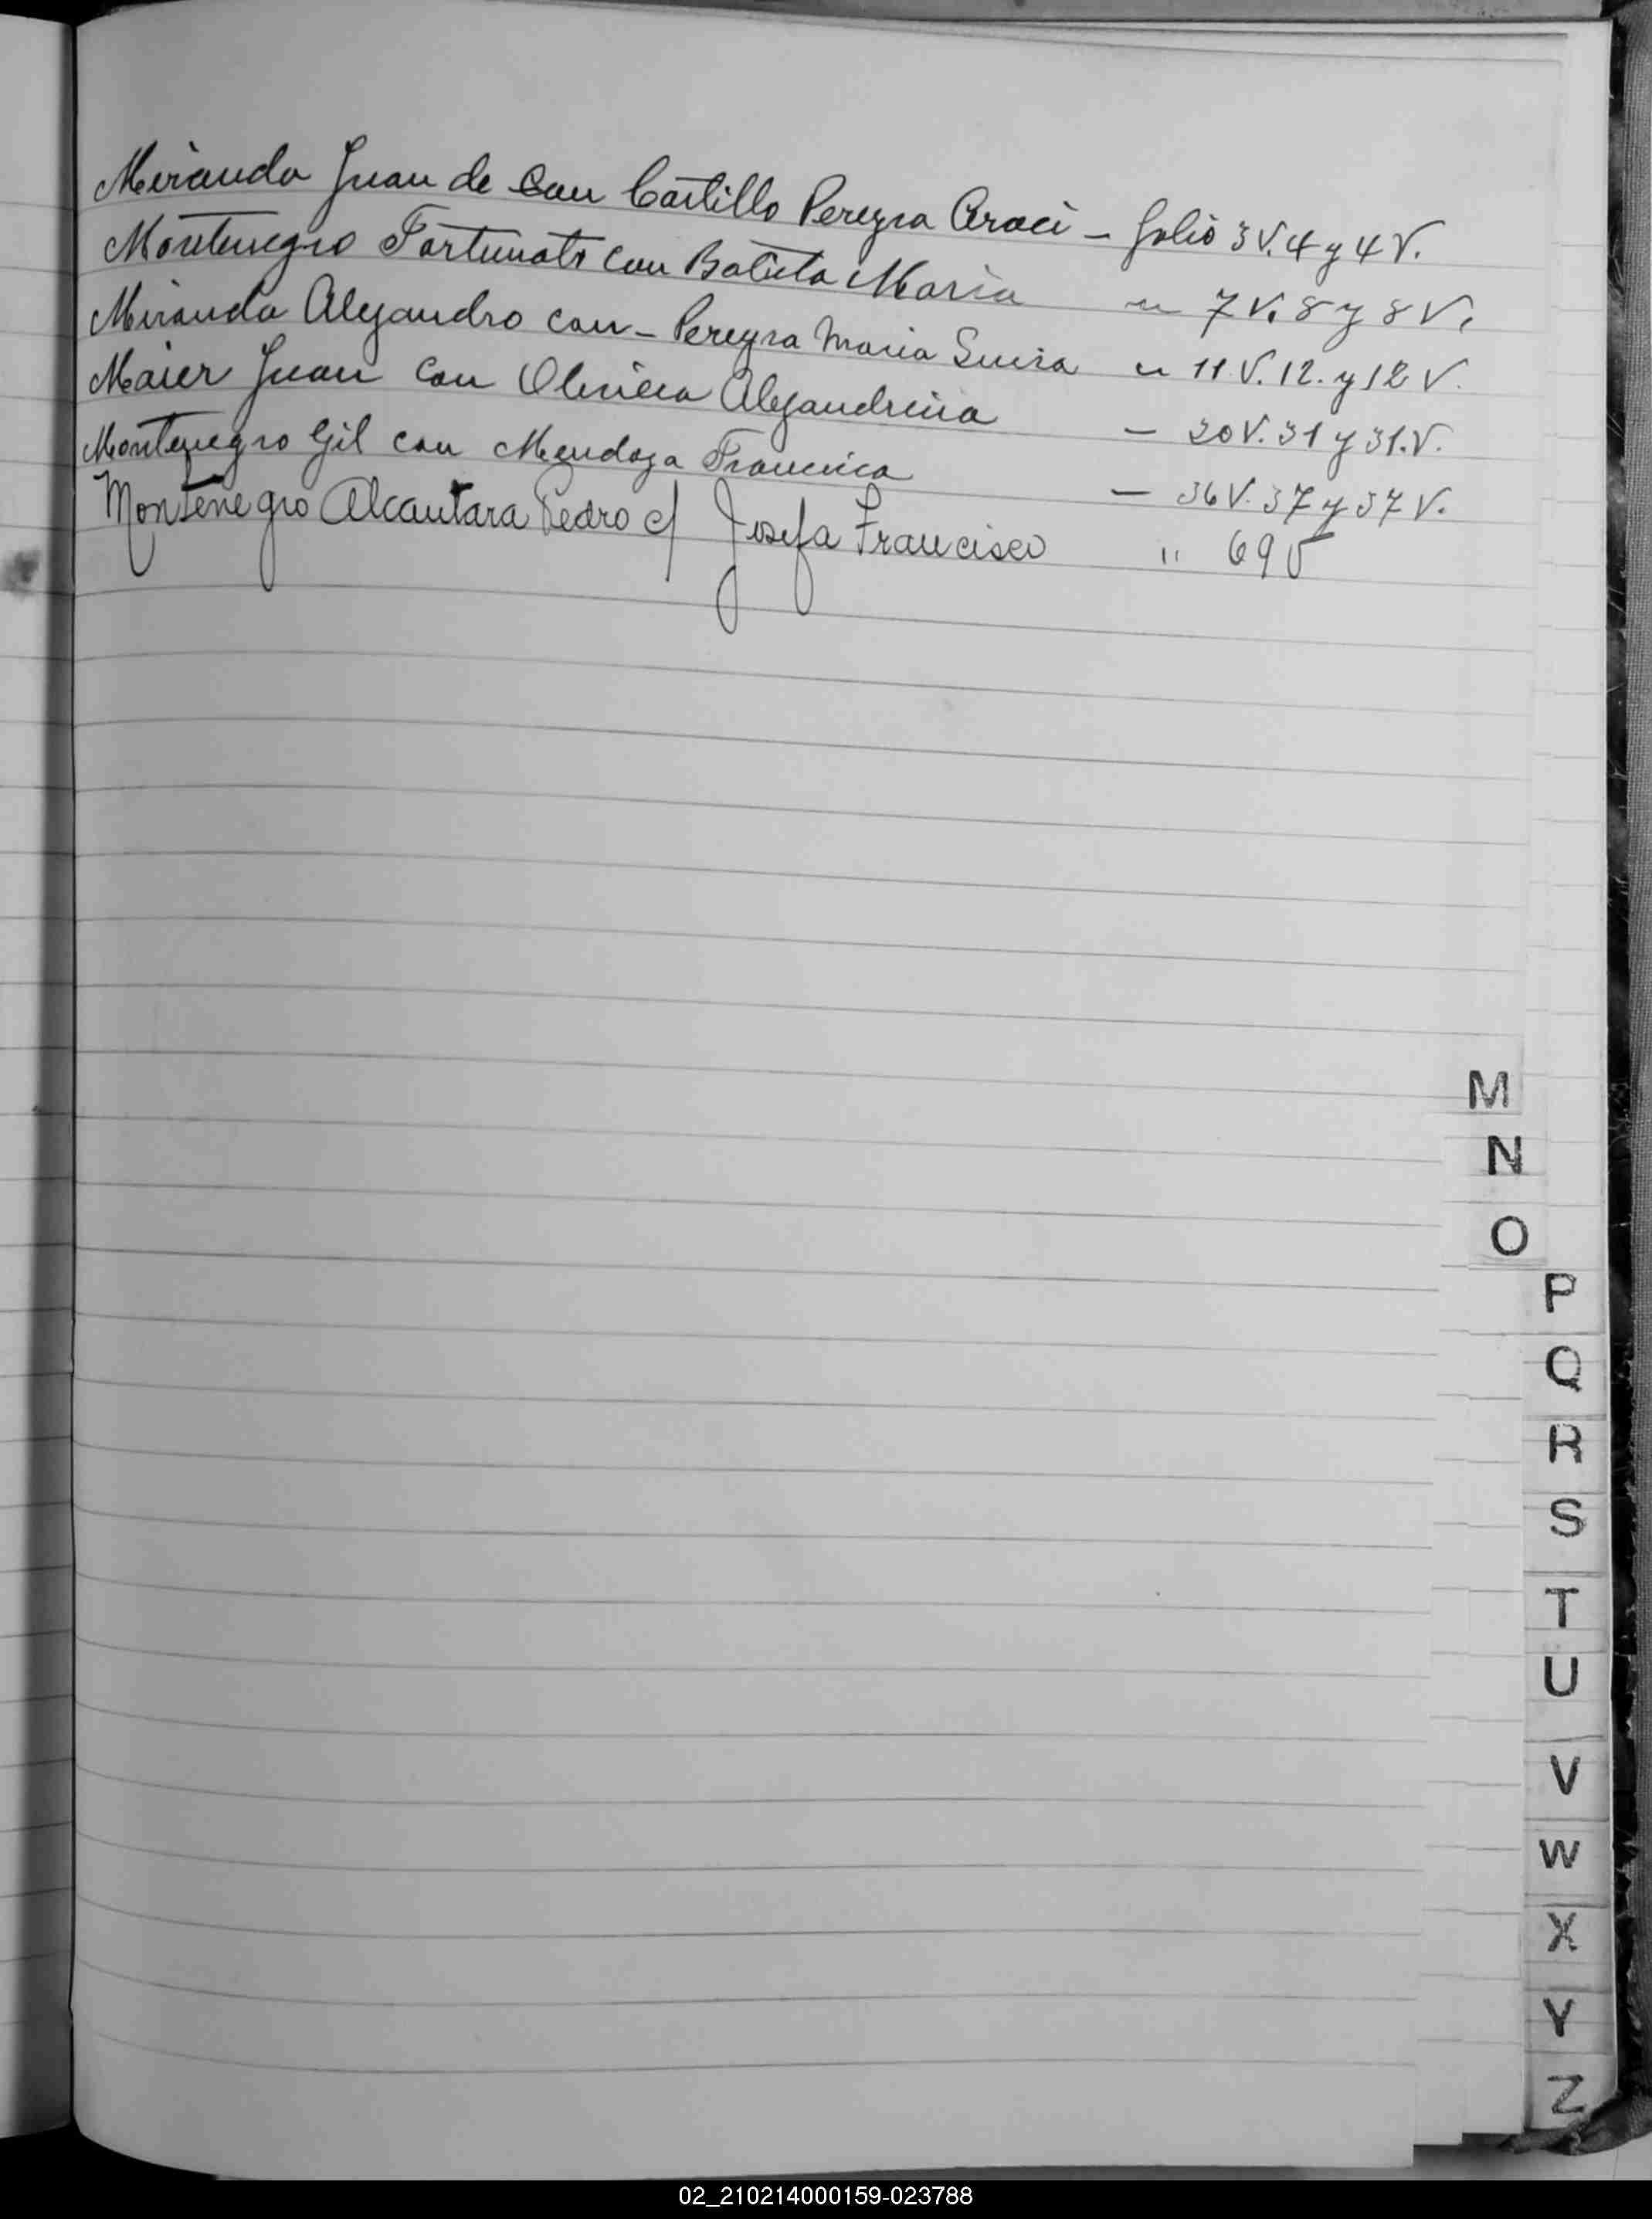 Miranda Juan de con Castillo Pereyra Araci - folio 3 V. 4 y 4 V.
Montenegro Fortunato con Batista Maria " 7 V. 8 y 8 V.
Miranda Alejandro con - Pereyra Maria " 11 V. 12. y 12 V.
Maier Juan con Oliveira Alejandrina - 30 V. 31 y 31. V.
Montenegro Gil con Mendoza Francisca - 36 V. 37 y 37 V.
Montenegro Alcantara Pedro c/ Josefa Francisco " 69 V
M
N
O
P
Q
R
S
T
U
V
W
X
Y
Z
02_210214000159-023788